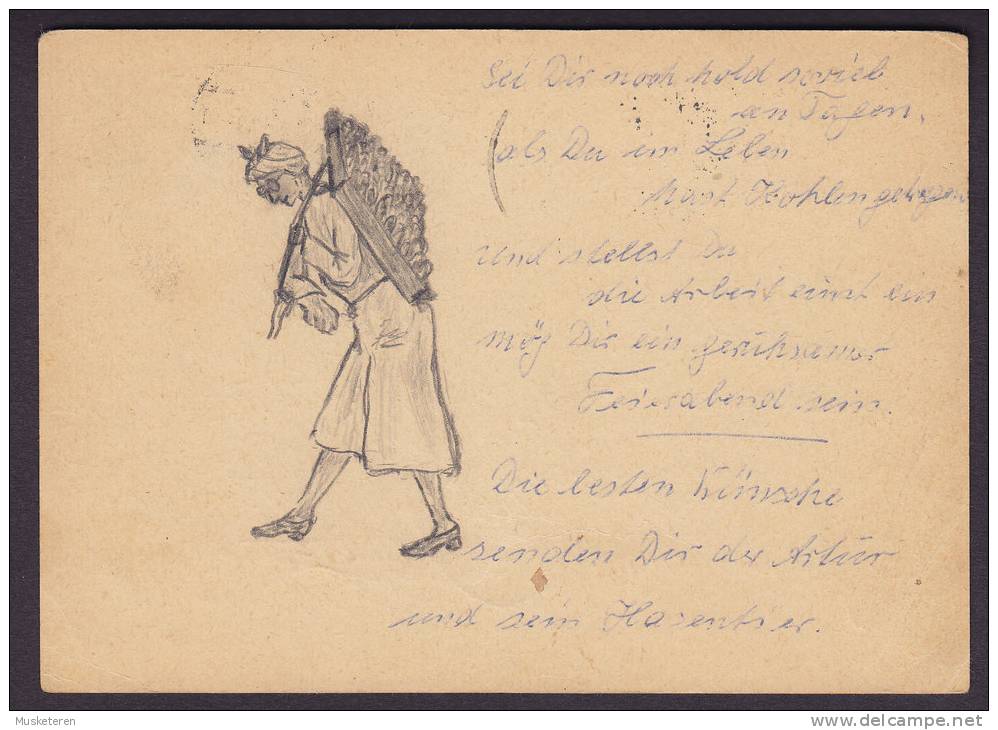 Sei Dir noch hold soviel
an Tagen,
(als Du im Leben
hast Kohlen getragen
und stellst Du
die Arbeit einst ein
mög Dir ein geruhsamer
Feierabend sein.
Die besten Wünsche
senden Dir der Artur
und sein Hasentier.
Musketeren
www.delcampe.net